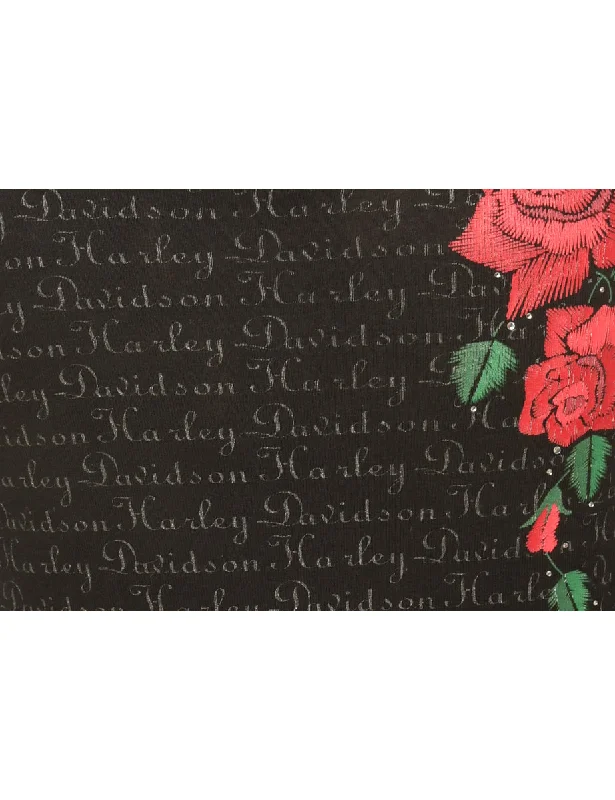 Davidson Harley Da
on Harley Davidson
y Davidson Harley Da
dson Harley Davidson H
ley Davidson Harley D
idson Harley Davidson H
arley Davidson Harley Davids
Davidson Harley Davidson Harle
Harley Davidson Harley David
Davidson Harley Davidson Harle